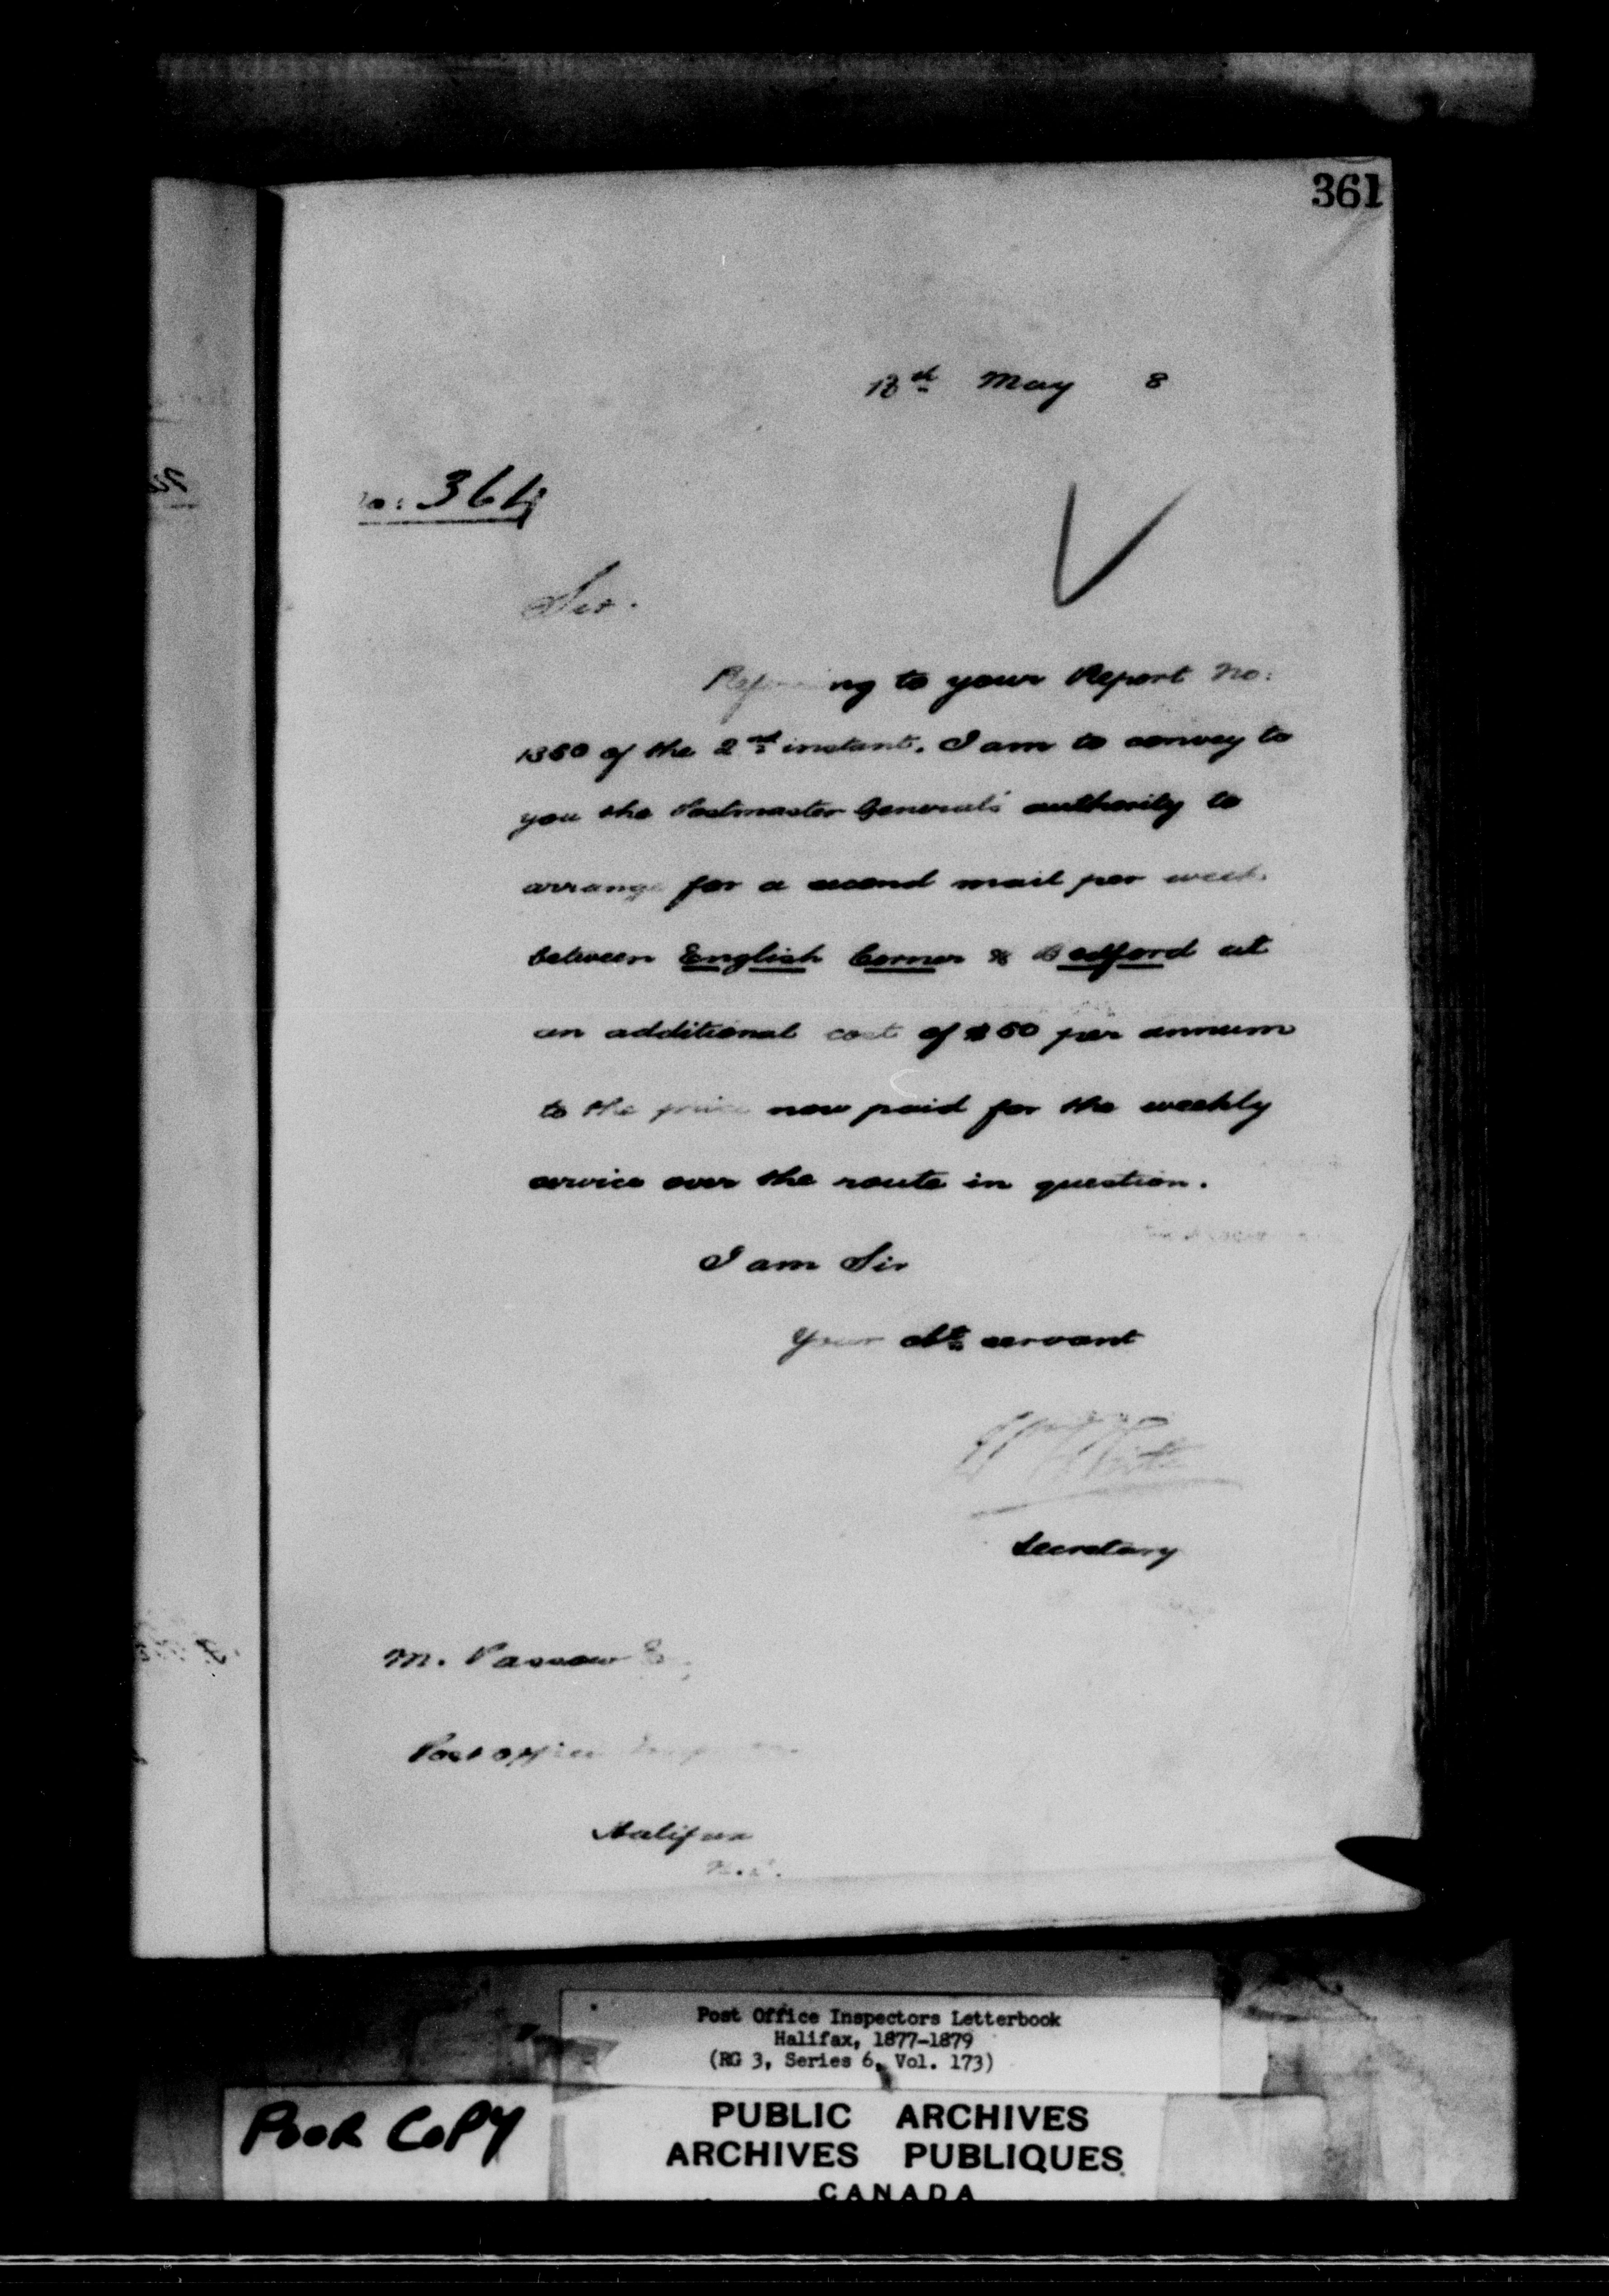 361
May 8
364
Sir.
Referring to your Report No:
1360 of the 2nd instant. I am to convey to
you the Postmaster General's authority to
arrange for a second mail per week
between English Corner & Bedford at
an additional cost of $50 per annum
to the price now paid for the weekly
service over the route in question.
I am Sir
Your obt. servant
Secretary
M. Passow
Post office
Halifax
N.S.
Post Office Inspectors Letterbook
Halifax, 1877-1879
(RG 3, Series 6, Vol. 173)
POOR COPY
PUBLIC ARCHIVES
ARCHIVES PUBLIQUES
CANADA